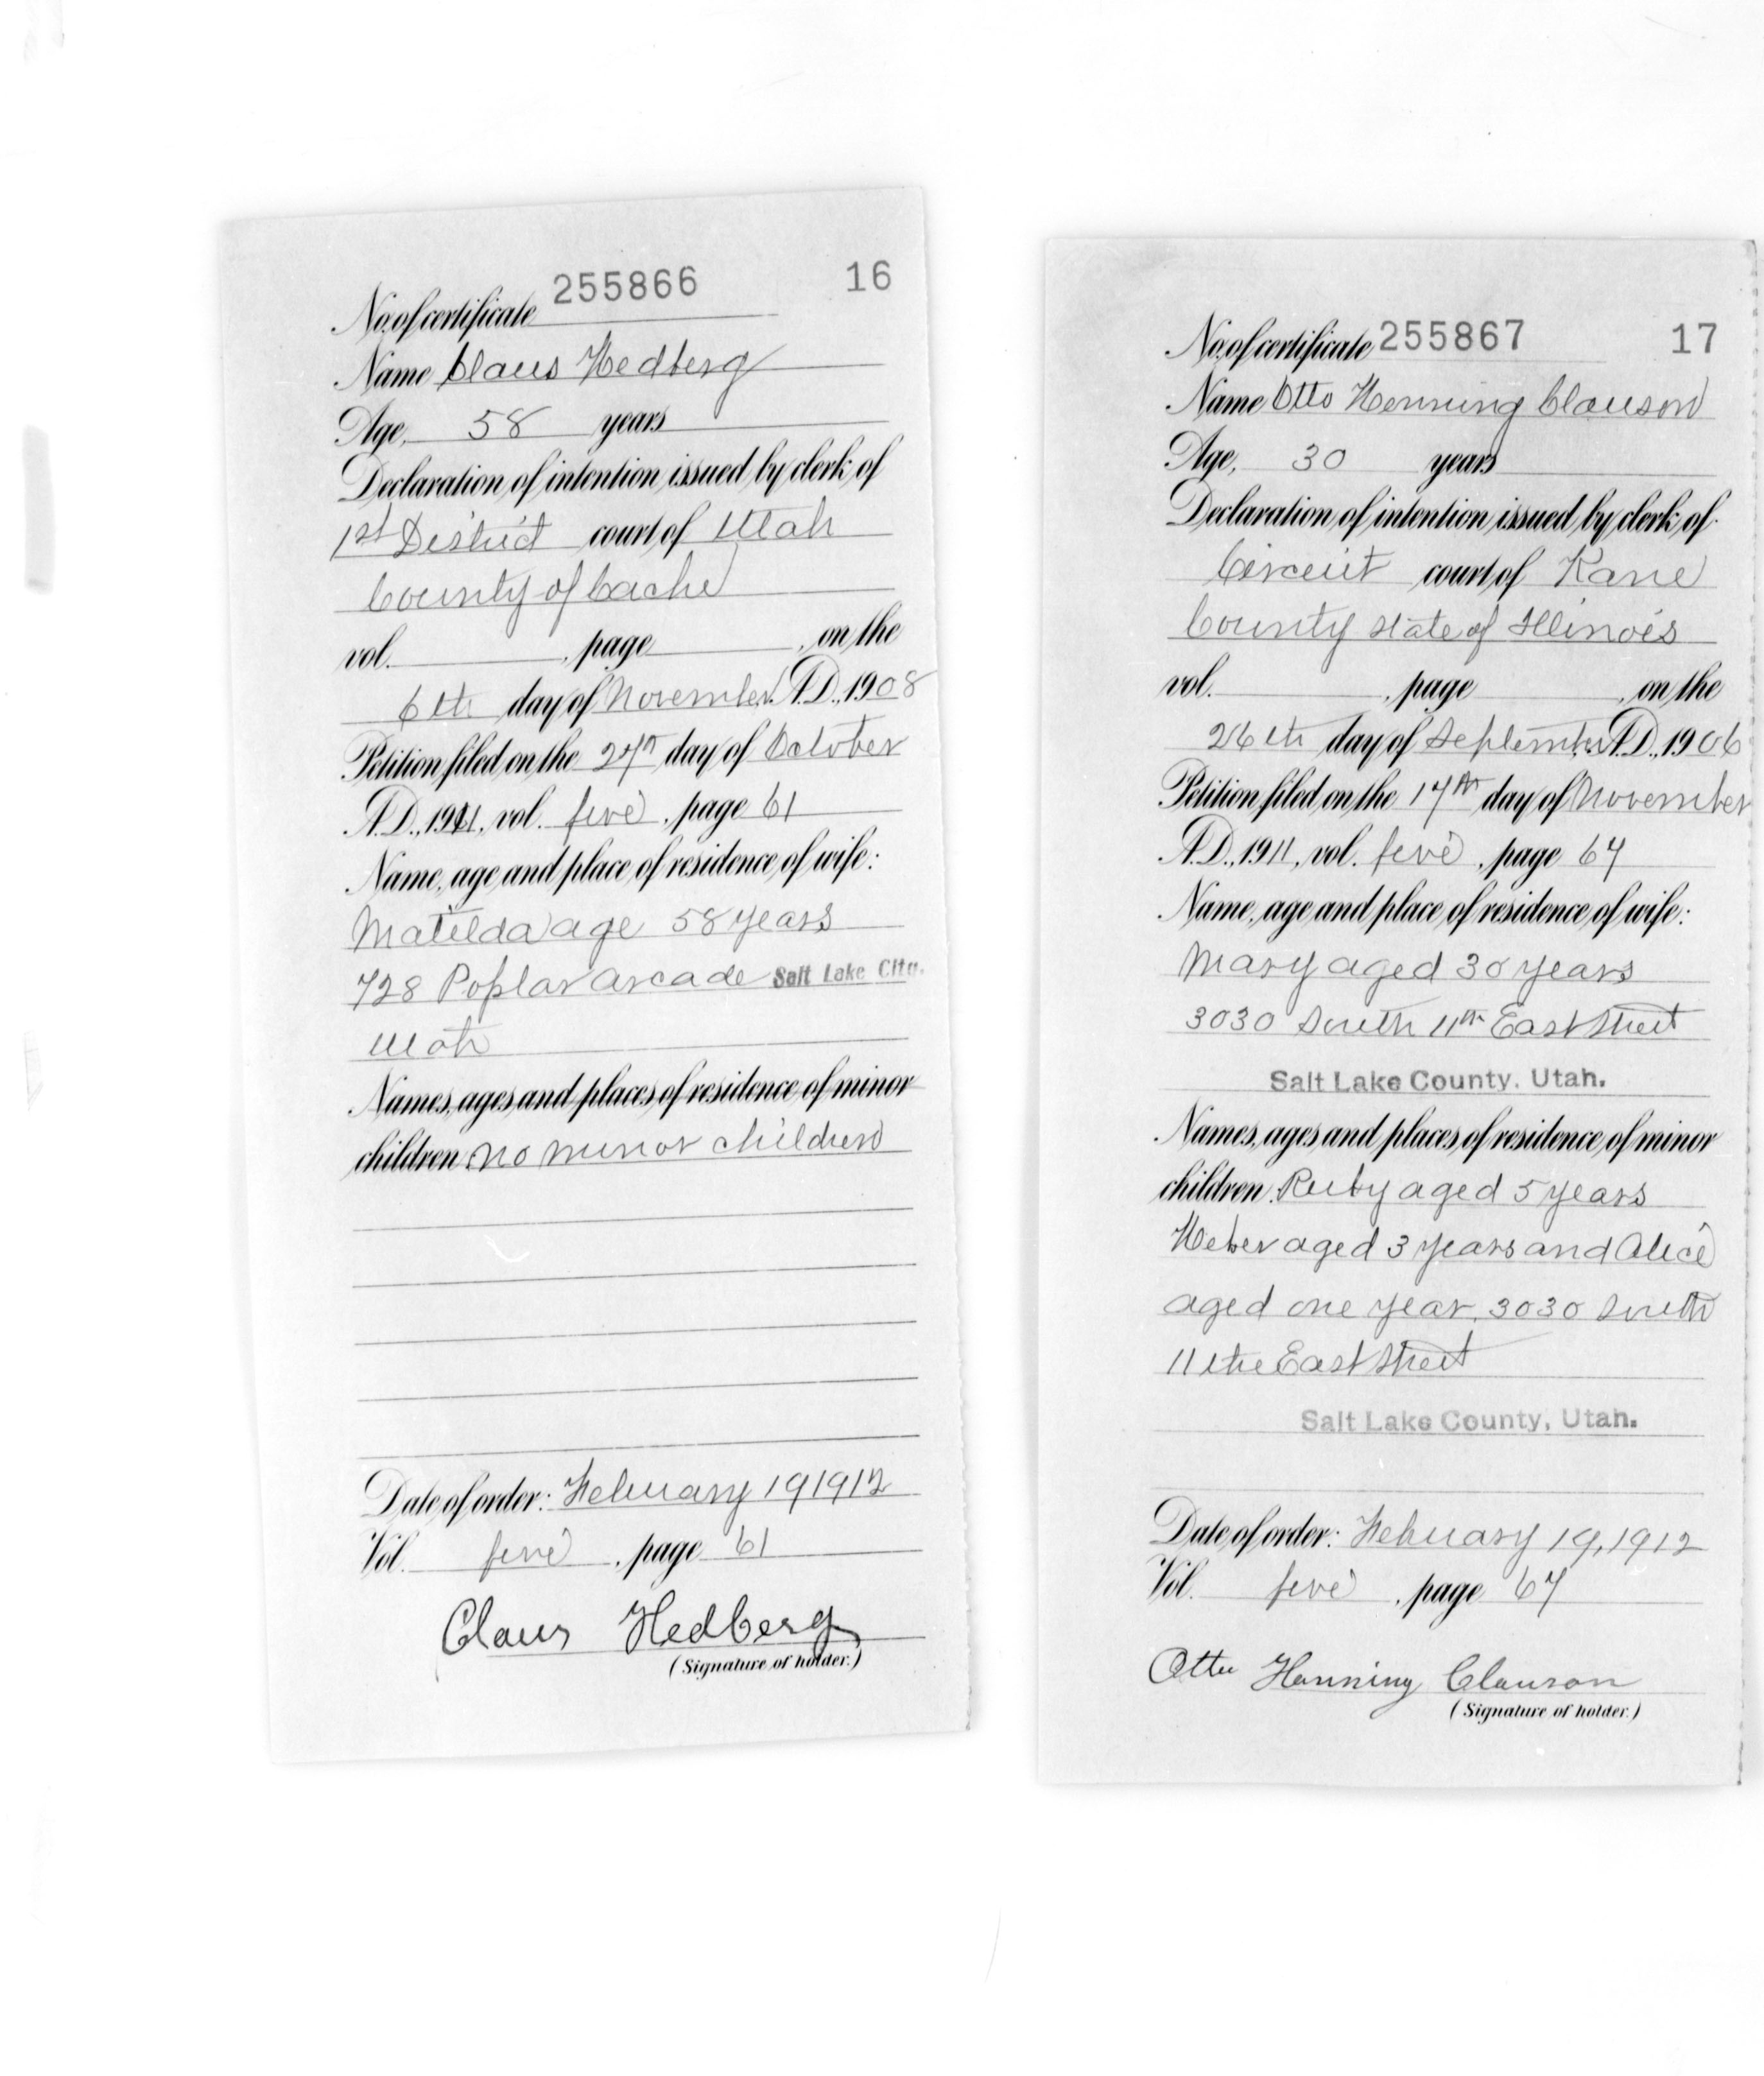 255866 16
No. of certificate
Name Claus Hedberg
Age, 58 years
Declaration of intention issued by clerk of
1st District court of Utah
County of Cache
vol. , page , on the
6th day of November A.D., 1908
Petition filed on the 27th day of October
A.D., 1911, vol. five, page 61
Name, age and place of residence of wife:
Matilda age 58 years
728 Poplar Arcade Salt Lake City.
Utah
Names, ages and places of residence of minor
children no minor children
Date of order: February 19 1912
Vol. five, page 61
Claus Hedberg
(Signature of holder.)
No. of certificate 255867 17
Name Otto Henning Clauson
Age, 30 years
Declaration of intention issued by clerk of
Circuit court of Kane
County state of Illinois
vol. , page , on the
26th day of September A.D., 1906
Petition filed on the 17th day of November
A.D., 1911, vol. five, page 67
Name, age and place of residence of wife:
Mary aged 30 years
3030 South 11th East Street
Salt Lake County, Utah.
Names, ages and places of residence of minor
children Ruby aged 5 years
Heber aged 3 years and Alice
aged one year, 3030 South
11the East Street
Salt Lake County, Utah.
Date of order: February 19, 1912
Vol. five, page 67
Otto Hanning Clauson
(Signature of holder.)